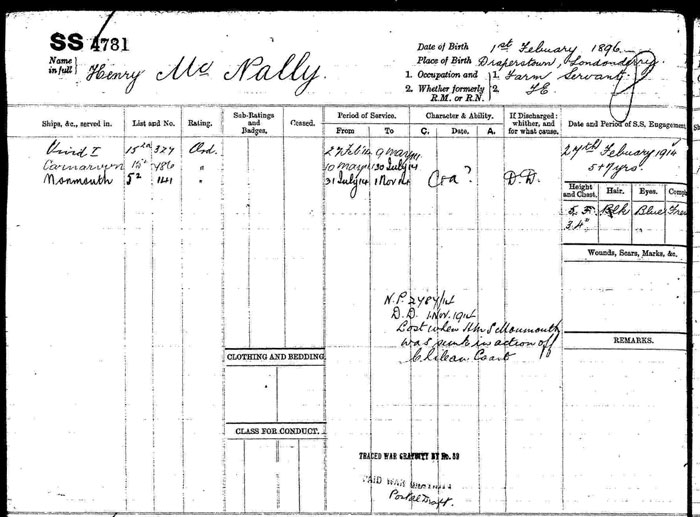 SS 4731
Name in full } Henry Mc Nally.
Date of Birth 1st Febuary 1896
Place of Birth Draperstown, Londonderry
1. Occupation and 1. Farm Servant
2. Whether formerly R.M. or R.N. 2.
Ships, &c., served in. List and No. Rating. Sub-Ratings and Badges. Ceased. Period of Service. From To Character & Ability. C. Date. A. If Discharged: whether, and for what cause. Date and Period of S.S. Engagement
Vivid I 15 327 Ord. 27 Feb 14 9 May 14
Carnarvon 15 486 " 10 May 14 30 July 14
Monmouth 5 141 " 31 July 14 1 Nov 14 D.D.
27th Febuary 1914
5+7 yrs.
Height and Chest. Hair. Eyes.
Blk Blue
34"
Wounds, Scars, Marks, &c.
N.P. 2784/14
D.D. 1. Nov. 1914
Lost when H.M.S Monmouth
was sunk in action off
Chilean Coast
REMARKS.
CLOTHING AND BEDDING.
CLASS FOR CONDUCT.
TRACED WAR GRATUITY BY No. 59
PAID WAR GRATUITY
Postal Draft.